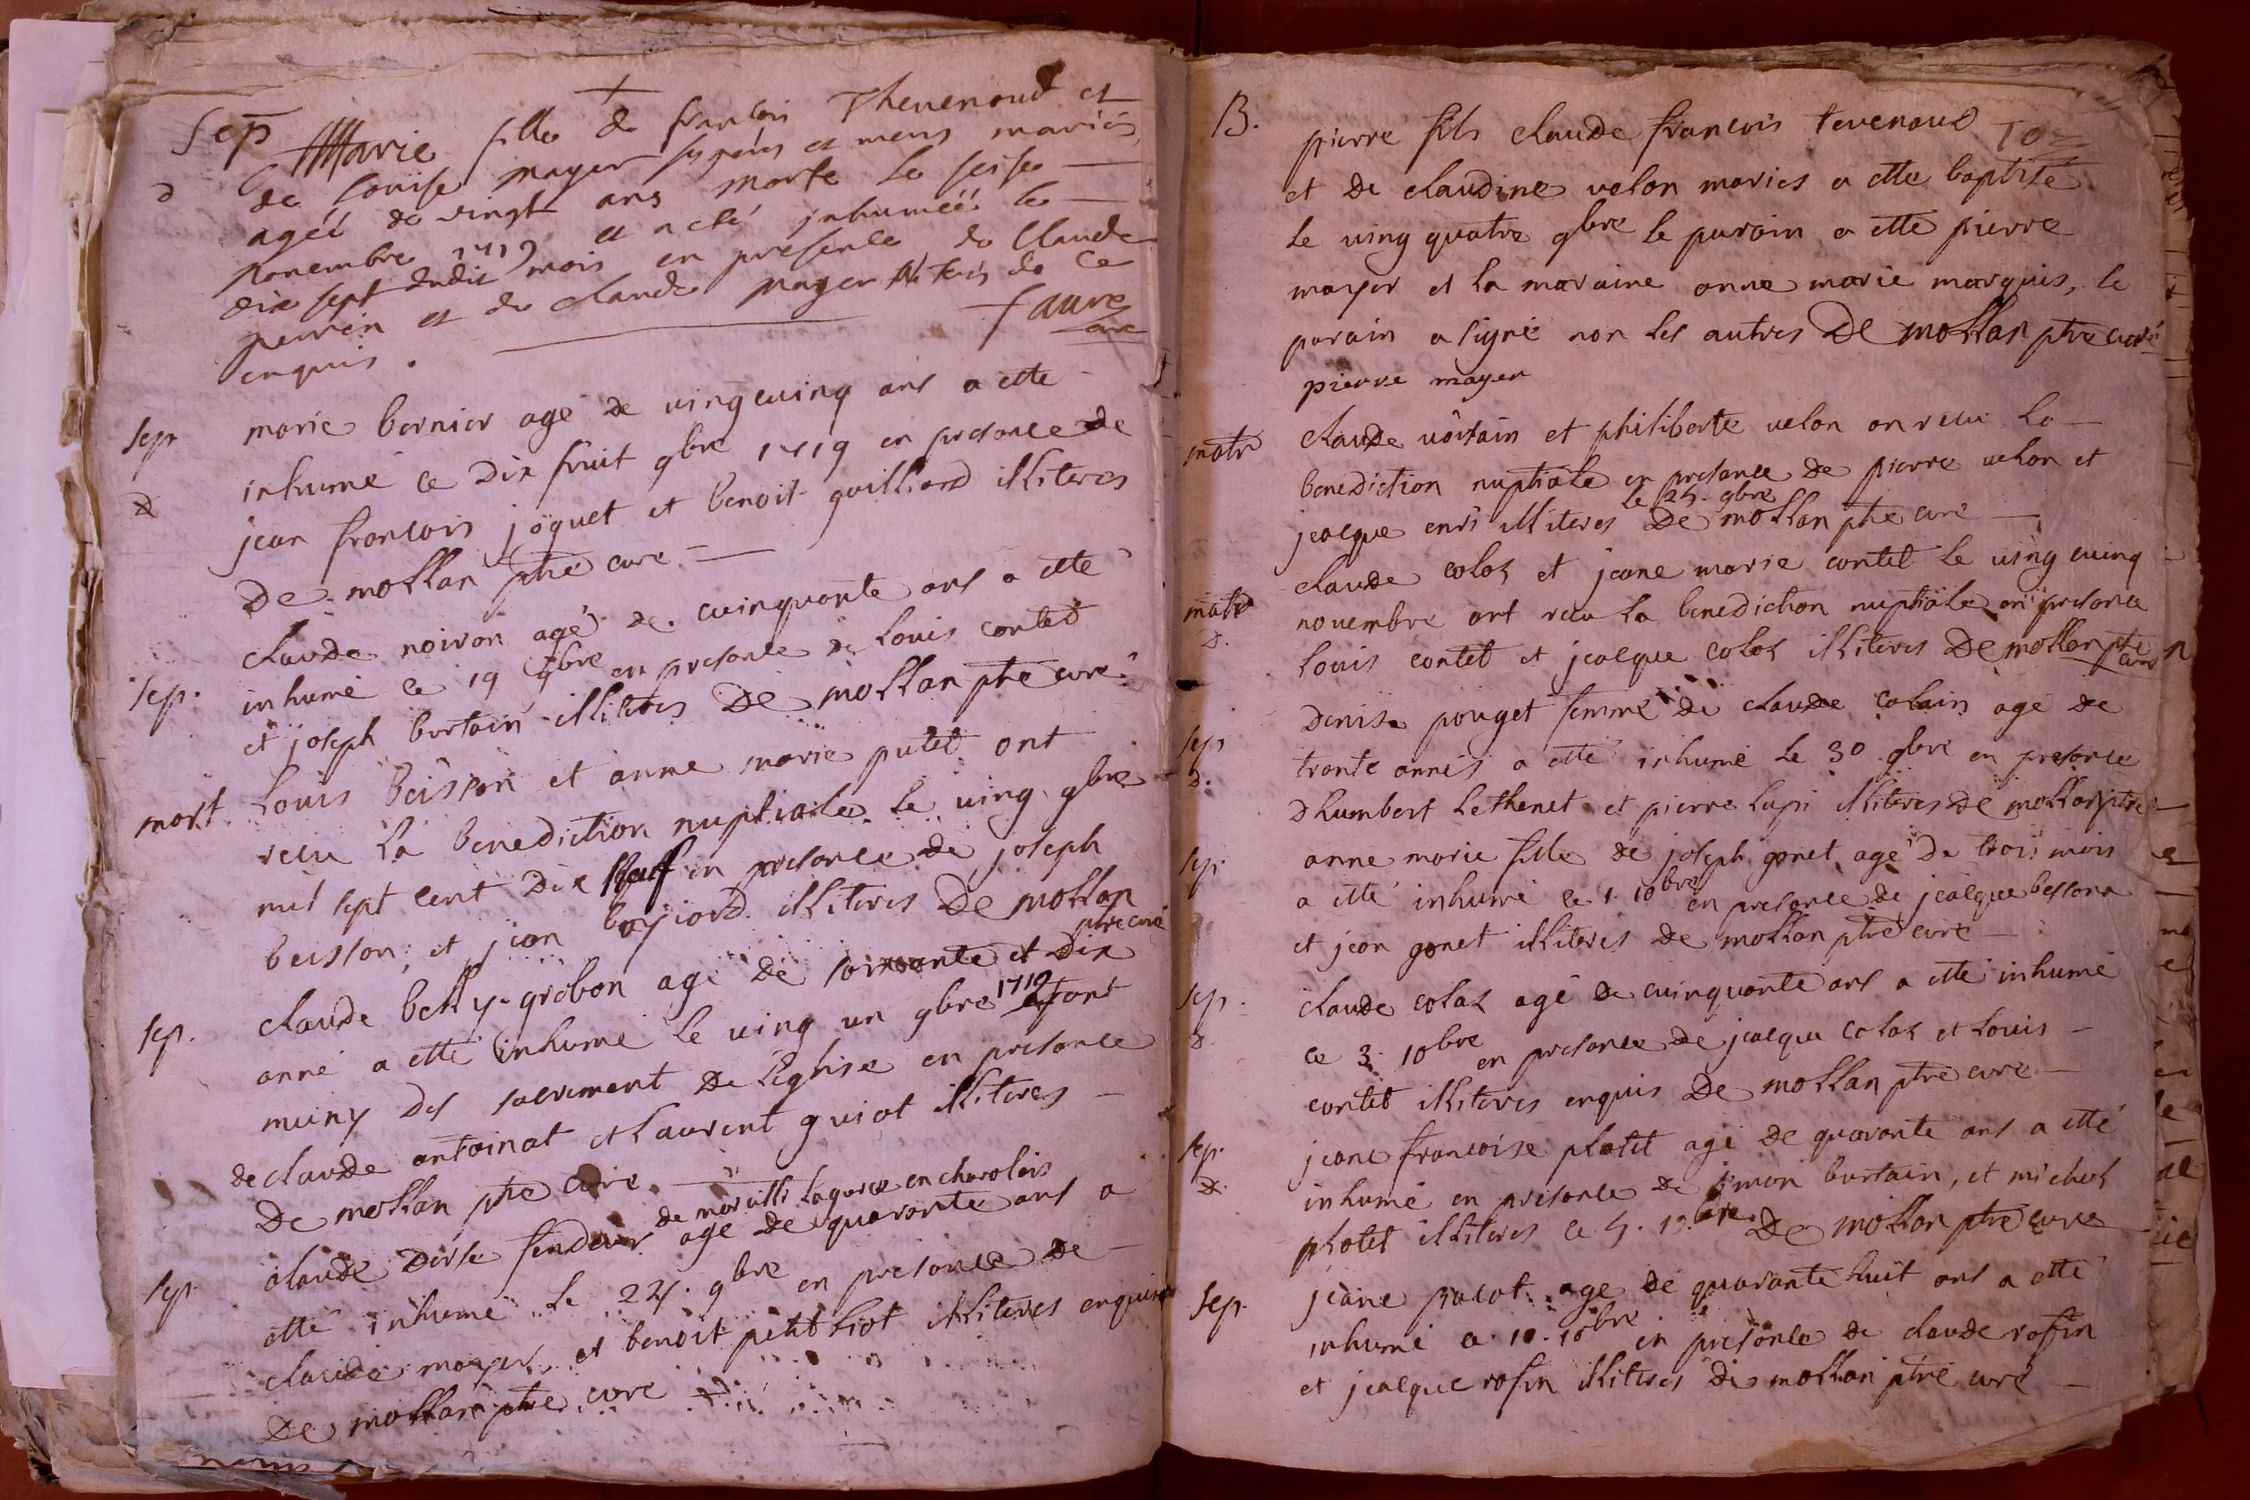 Sep
Marie fille de francois Thevenoud et
de Louise mayer ses peres et meres mariés
agéé de vingt ans morte le seise
novembre 1719 et a eté inhuméé le
dix sept dudit mois en presence de Claude
perrin et de claude mayer de ce
enquis. faure
cure
sep
D
marie bernier agé de ving cuinq ans a etté
inhumé ce dix huit 9bre 1719 en presance de
jean francois joguet et benoit guilliard illiteres
De mollan ptre curé
sep.
claude noiron agé de cuinquante ans a etté
inhumé ce 19 9bre en presance de Louis contet
et joseph burtain illiteres De mollan ptre curé
mart
Louis buisson et anne marie putet ont
recu la benediction nuptiale le ving 9bre
mil sept cent dix neuf en presance de joseph
buisson, et jean illiteres De mollan
ptre curé
sep.
claude belly-grobon agé de soixante et dix
anné a etté inhumé le ving un 9bre 1719
muny des sacrement de L'eglise en presance
de claude antoinat et Laurent guiot illiteres
De mollan ptre curé
sep.
de en charolois
claude fendeur agé de quarante ans a
etté inhumé le 24. 9bre en presance de
claude mayer et benoit petit illiteres enquis
De mollan ptre curé
B.
pierre fils claude francois tevenoud
et de claudine velon mariés a etté baptisé
le ving quatre 9bre le parain a etté pierre
mayer et la maraine anne marie marquis, le
parain a signé non les autres De mollan ptre curé
pierre mayer
matr
claude et philiberte velon on recu la
benediction nuptiale en presance de pierre velon et
le 25. 9bre
jacque enri illiteres De mollan ptre curé
matr
D.
claude colas et jeane marie contet le ving cuinq
novembre ont recu la benediction nuptiale en presance
Louis contet et jacque colas illiteres De mollan ptre
curé
sep
D.
Denise pouget femme de claude agé de
trante annés a etté inhumé le 30 9bre en presance
D'humbert Lethenet et pierre Lupi illiteres De mollan ptre
sep.
anne marie fille de joseph gonet agé de trois mois
a etté inhumé le 1. 10bre en presance de jacque bessona
et jean gonet illiteres De mollan ptre curé
sep.
D.
claude colas agé de cuinquante ans a etté inhumé
ce 3. 10bre en presance de jacque colas et Louis
contet illiteres enquis De mollan ptre curé
sep.
D.
jeane francoise platet agé de quarante ans a etté
inhumé en presance de simon burtain, et michel
platet illiteres ce De mollan ptre curé
sep.
jeane pacot agé de quarante huit ans a etté
inhumé ce 10. 10bre en presance de claude rofin
et jacque rofin illiteres De mollan ptre curé